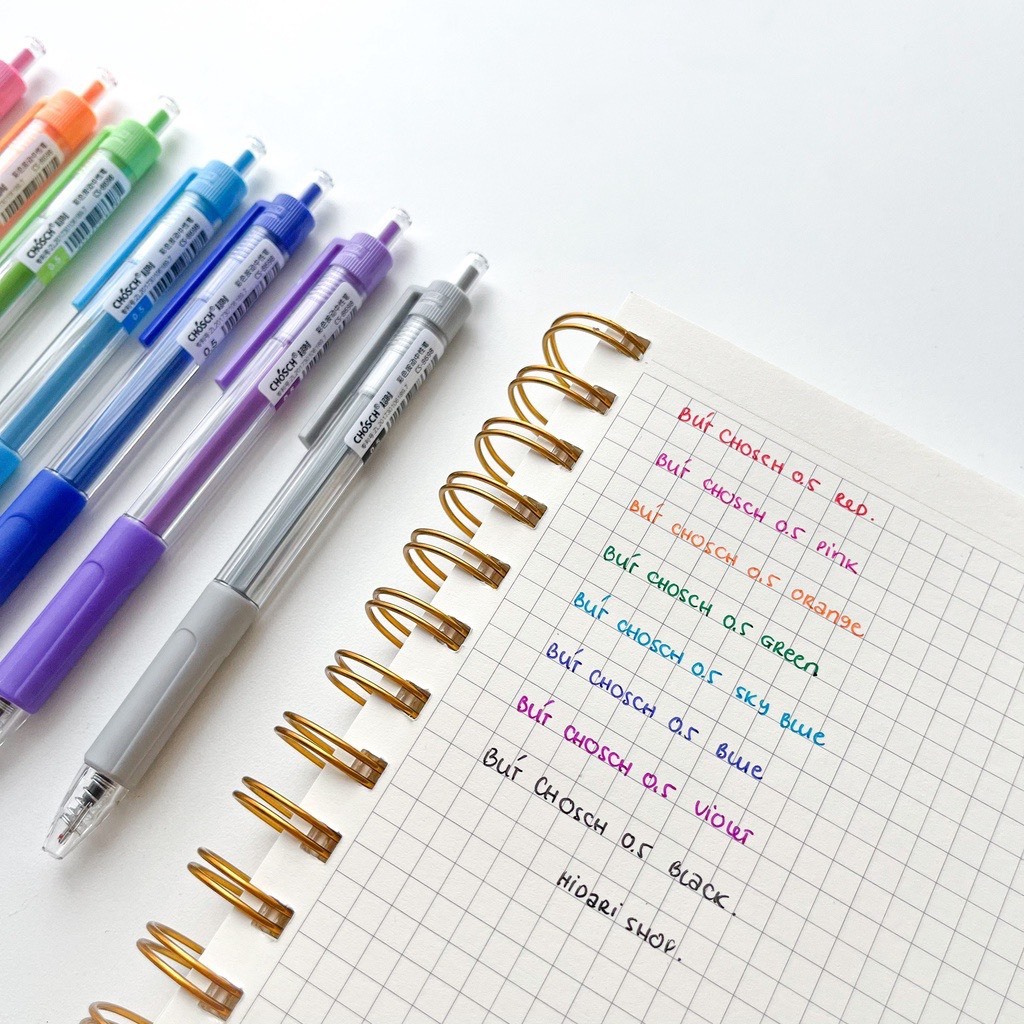 CHÓSCH®
0.5
CHÓSCH®
彩色按动中性笔
0.5
CHÓSCH®
彩色按动中性笔
0.5
CHÓSCH®
彩色按动中性笔
CHÓSCH®
彩色按动中性笔
BÚT CHOSCH 0.5 RED.
BÚT CHOSCH 0.5 PINK
BÚT CHOSCH 0.5 ORANGE
BÚT CHOSCH 0.5 GREEN
BÚT CHOSCH 0.5 SKY BLUE
BÚT CHOSCH 0.5 BLUE
BÚT CHOSCH 0.5 VIOLET
BÚT CHOSCH 0.5 BLACK.
HIDARI SHOP.